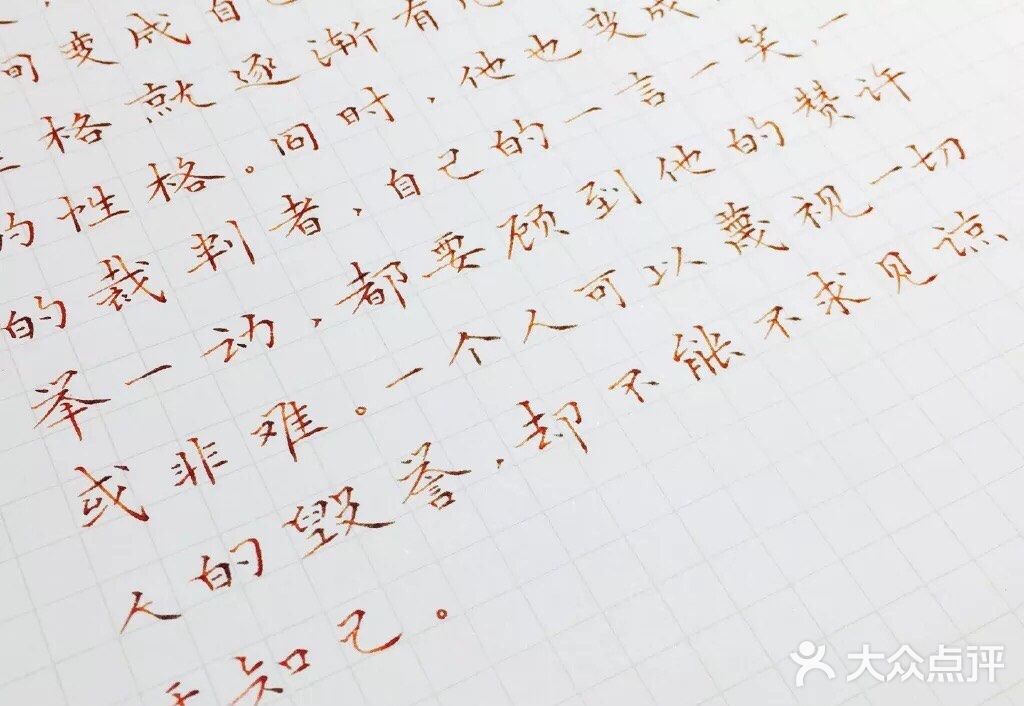 间变成自己
格就逐渐有
的性格。同时，他也变成
的裁判者，自己的一言一笑，一
举一动，都要顾到他的赞许
或非难。一个人可以蔑视一切
人的毁誉，却不能不求见谅
于知己。
大众点评